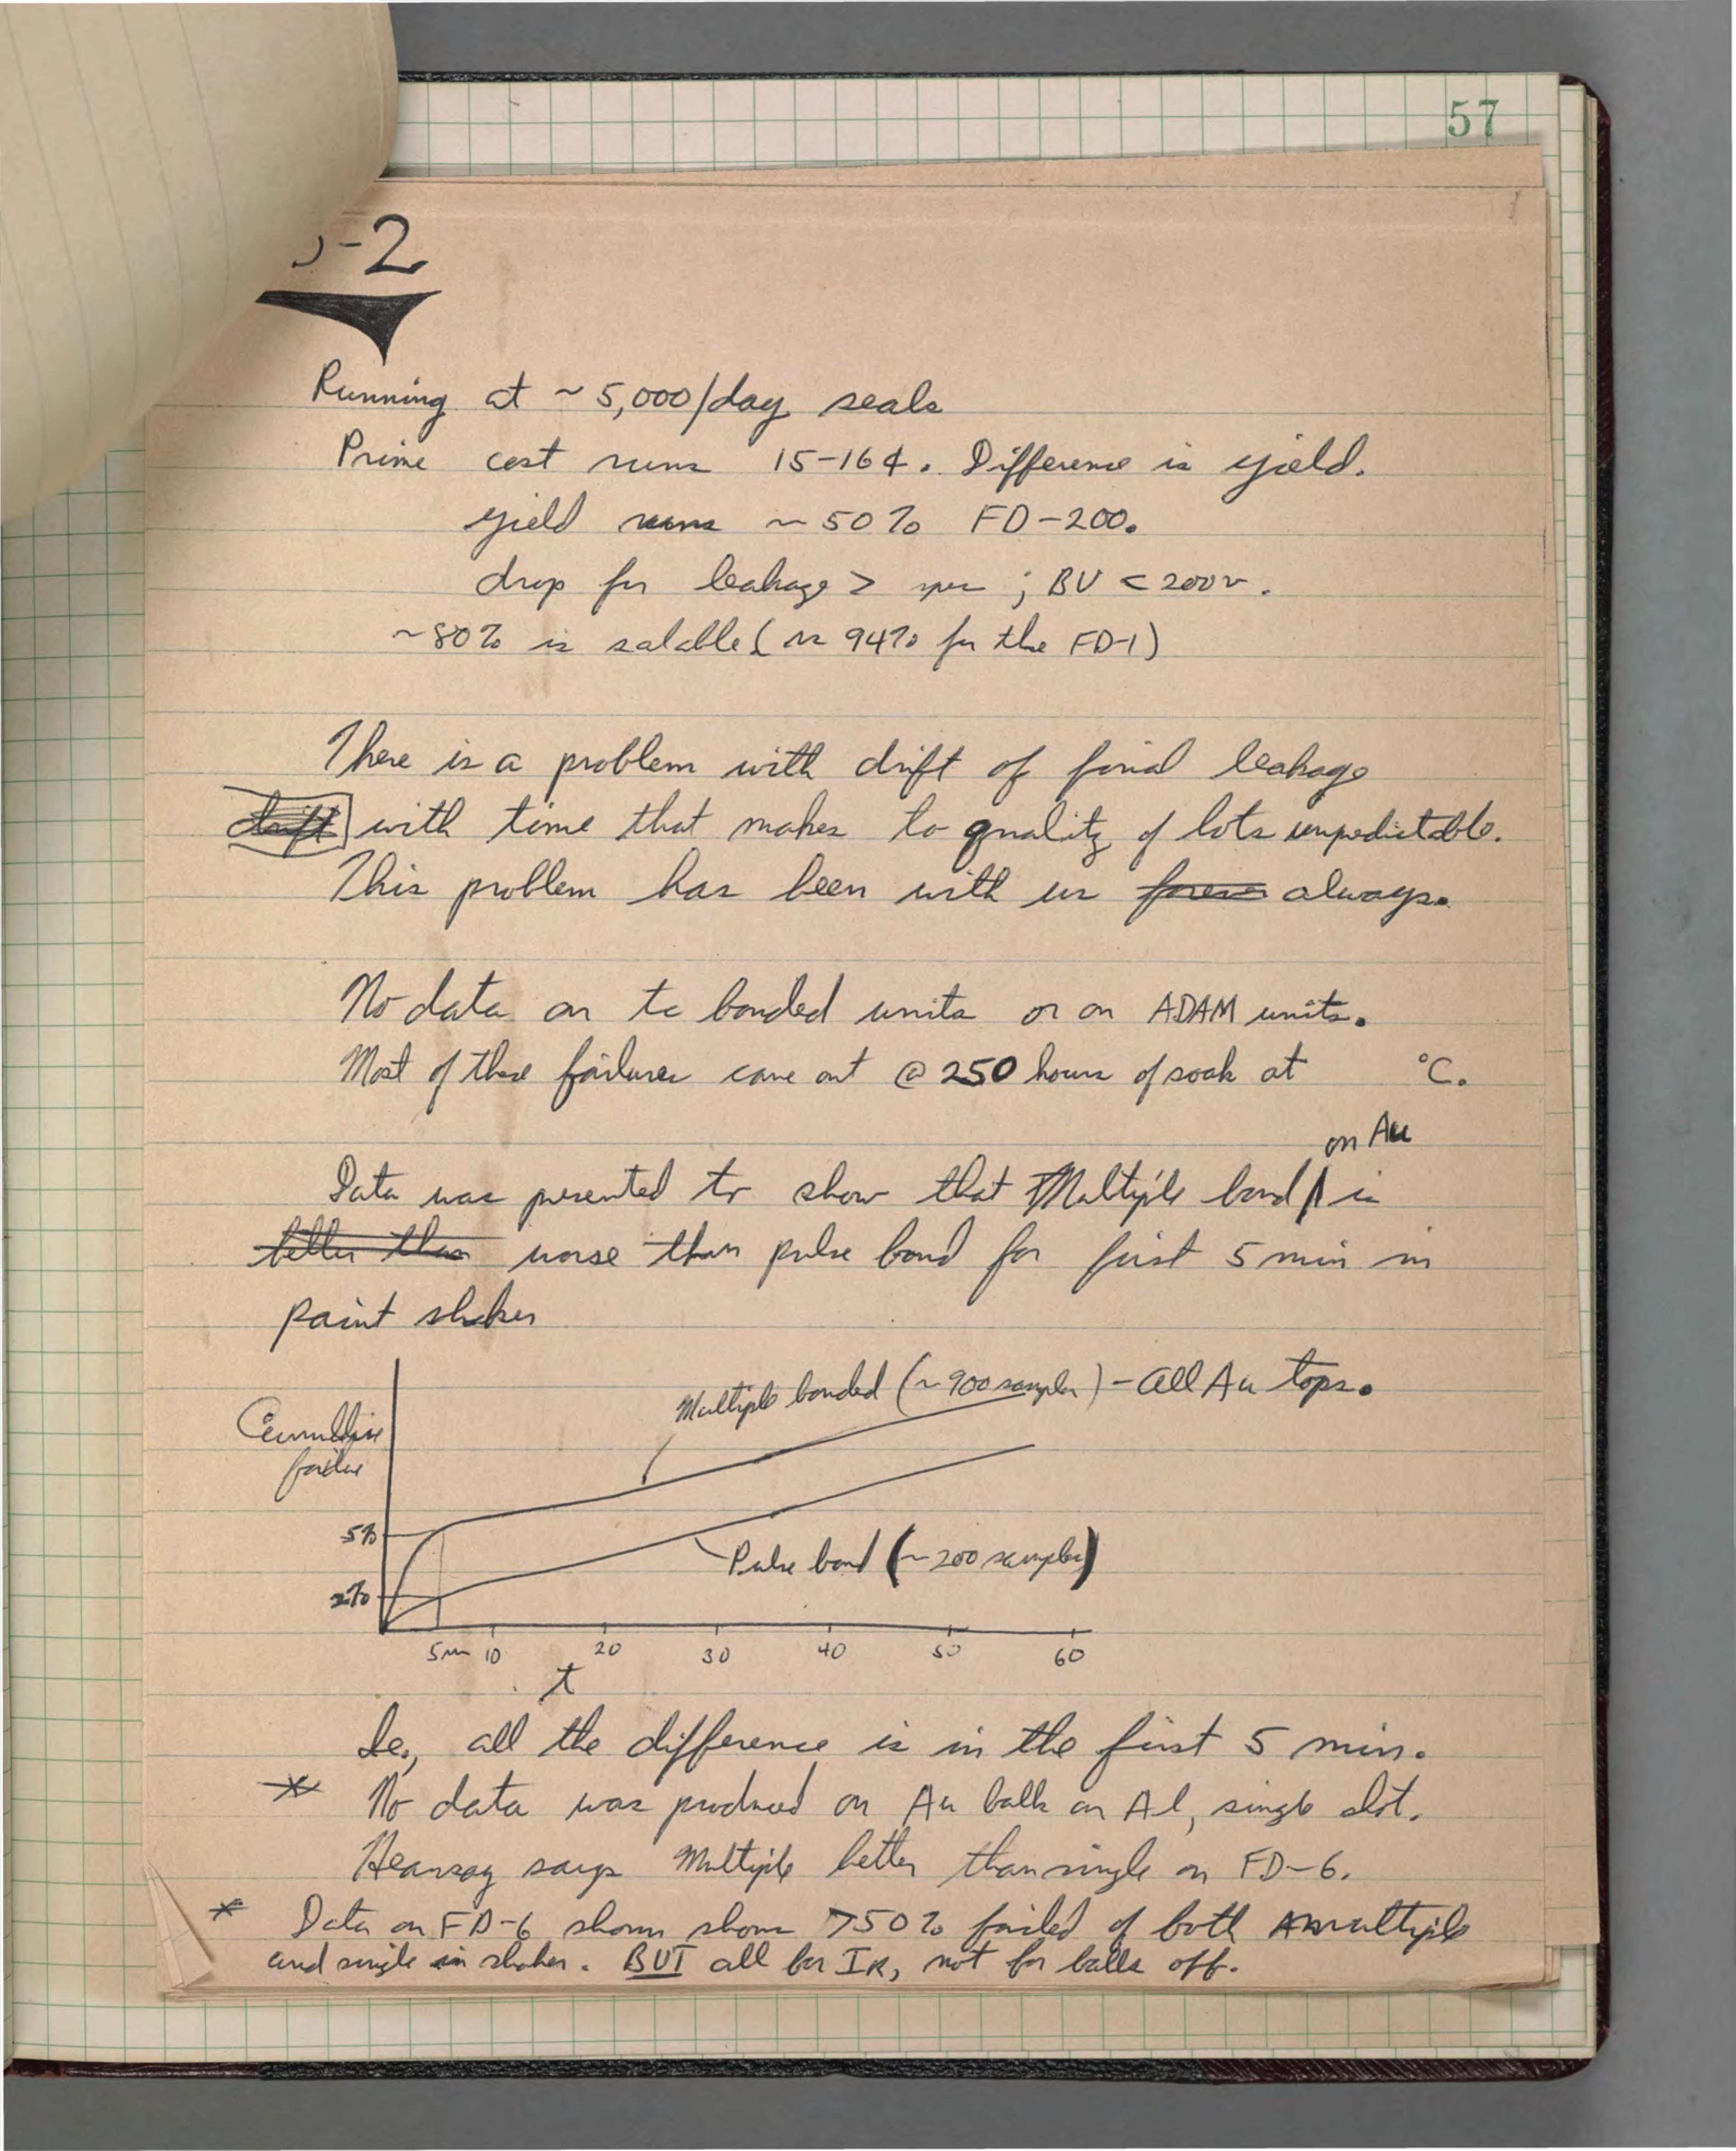 57
-2
Running at ~ 5,000/day seals
Prime cost runs 15-16¢. Difference is yield.
yield runs ~ 50% FD-200.
drop for leakage > spec ; BV < 200v.
~80% is salable (vs 94% for the FD-1)
There is a problem with drift of final leakage
drift with time that makes to quality of lots unpredictable.
This problem has been with us forever always.
No data on tc bonded units or on ADAM units.
Most of these failures come out @ 250 hours of soak at °C.
on Au
Data was presented to show that Multiple bond is
better than worse than pulse bond for first 5 min in
paint shaker
Multiple bonded (~900 samples) - all Au tops.
Cumultive
failure
5%
Pulse bond (~200 samples)
2%
5 min 10 20 30 40 50 60
t
Ie., all the difference is in the first 5 min.
* No data was produced on Au balls on Al, single shot.
Hearsay says Multiple better than single on FD-6.
* Data on FD-6 shown shows >50% failed of both multiple
and single in shaker. BUT all for IR, not for balls off.